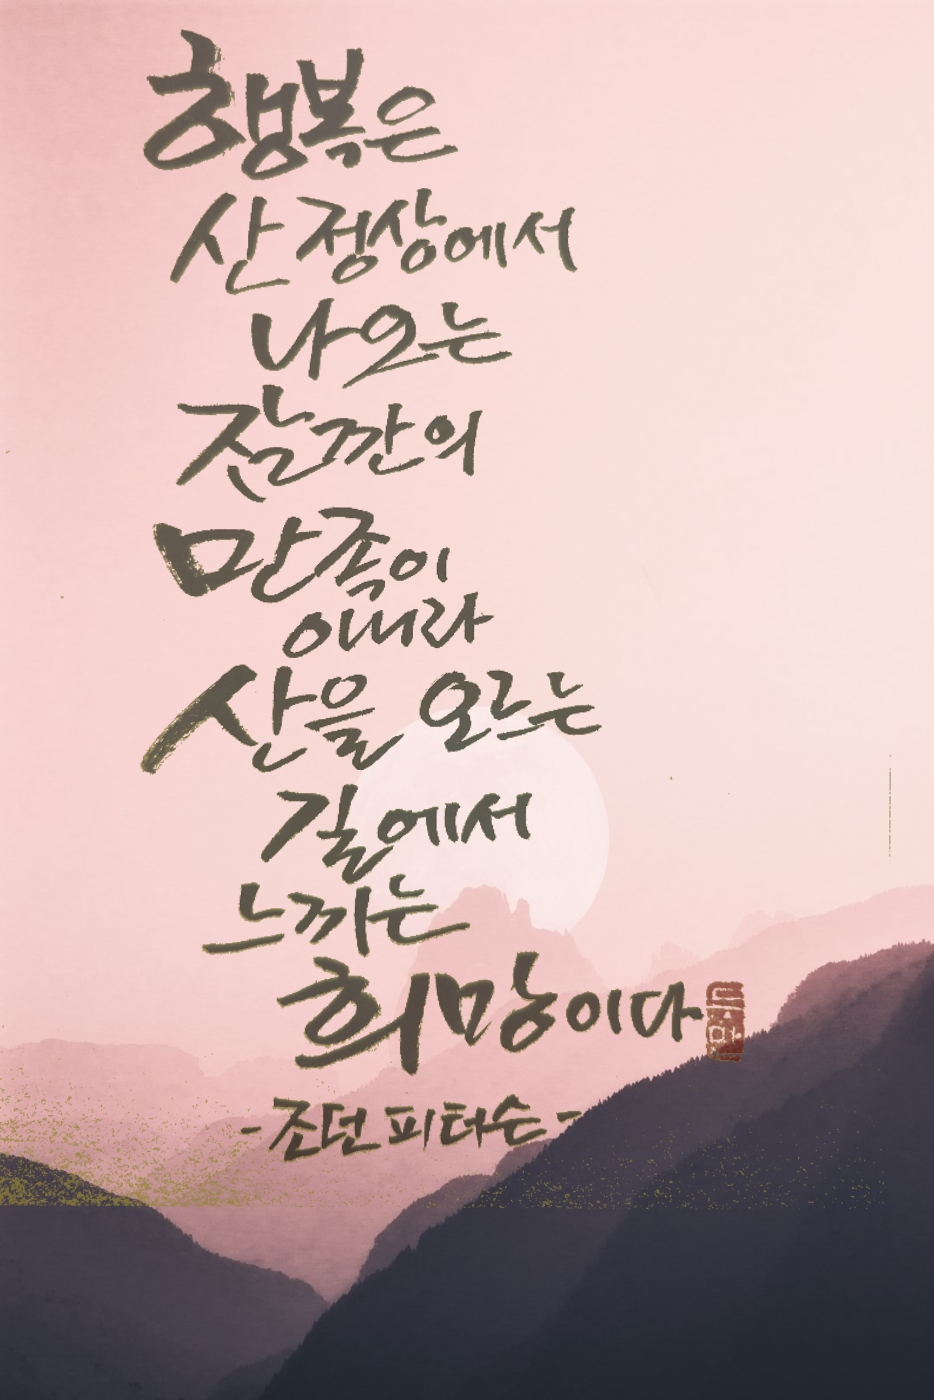 행복은
산 정상에서
나오는
잠깐의
만족이
아니라
산을 오르는
길에서
느끼는
희망이다
- 조던 피터슨 -